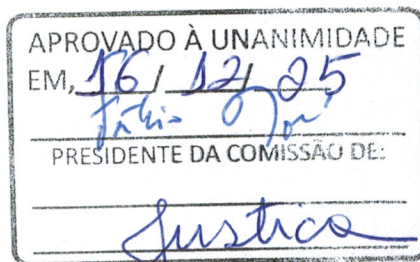 APROVADO À UNANIMIDADE
EM, 16 / 12 / 25
Fábio
PRESIDENTE DA COMISSÃO DE:
Justiça